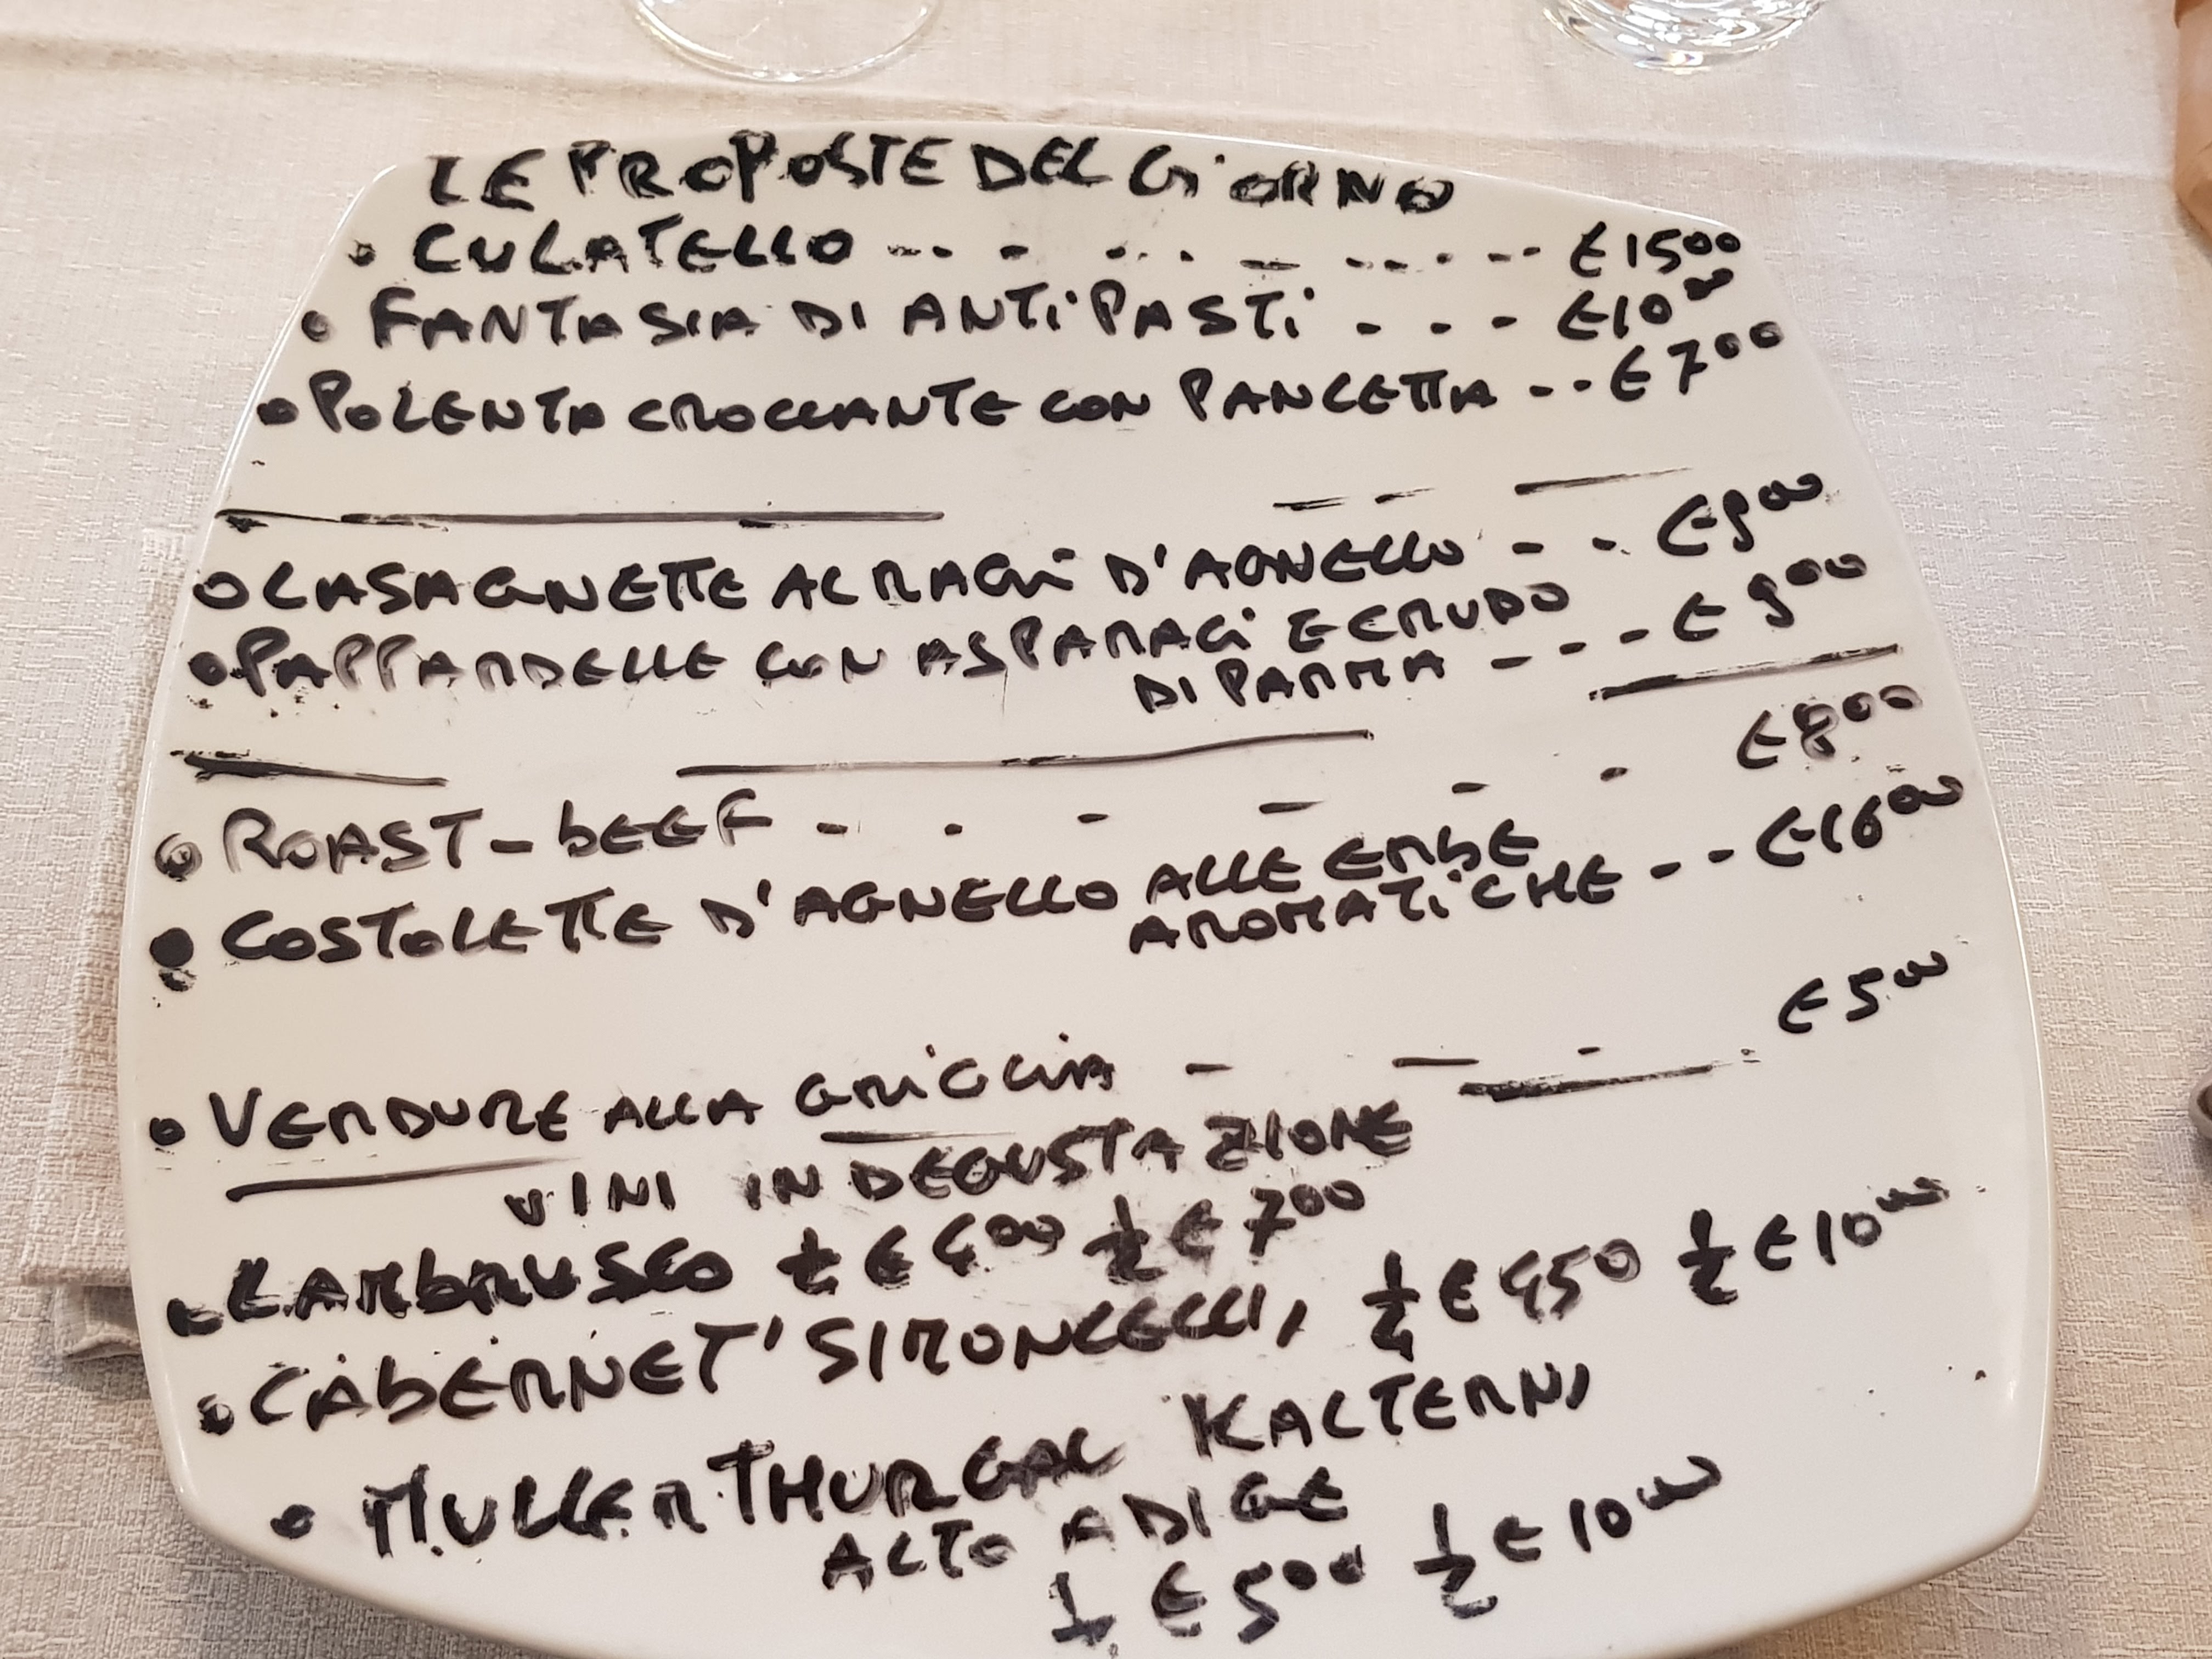 LE PROPOSTE DEL GiORNO
• CULATELLO -- - - . . - - - . - - - € 15 00
• FANTASIA DI ANTiPASTi - - - € 10 00
• POLENTA CROCCANTE CON PANCETTA - - - € 7 00
• LASAGNETTE AL RAGÙ D'AGNELLO - - € 9 00
• PAPPARDELLE CON ASPARAGi E CRUDO
DI PARMA - - - € 9 00
• ROAST-bEEF - - - - - - € 8 00
• COSTOLETTE D'AGNELLO ALLE ERbE
AROMATiCHE - - € 16 00
• VERDURE ALLA GRiGLiA - - - € 5 00
VINI IN DEGUSTAZIONE
• LAMbRUSCO € 4 00 ½ € 7 00
• CAbERNET 'SIRONCELLI, ¼ € 4 50 ½ € 10 00
• MULLER THURGAU KALTERN
ALTO ADIGE
€ 5 00 ½ € 10 00